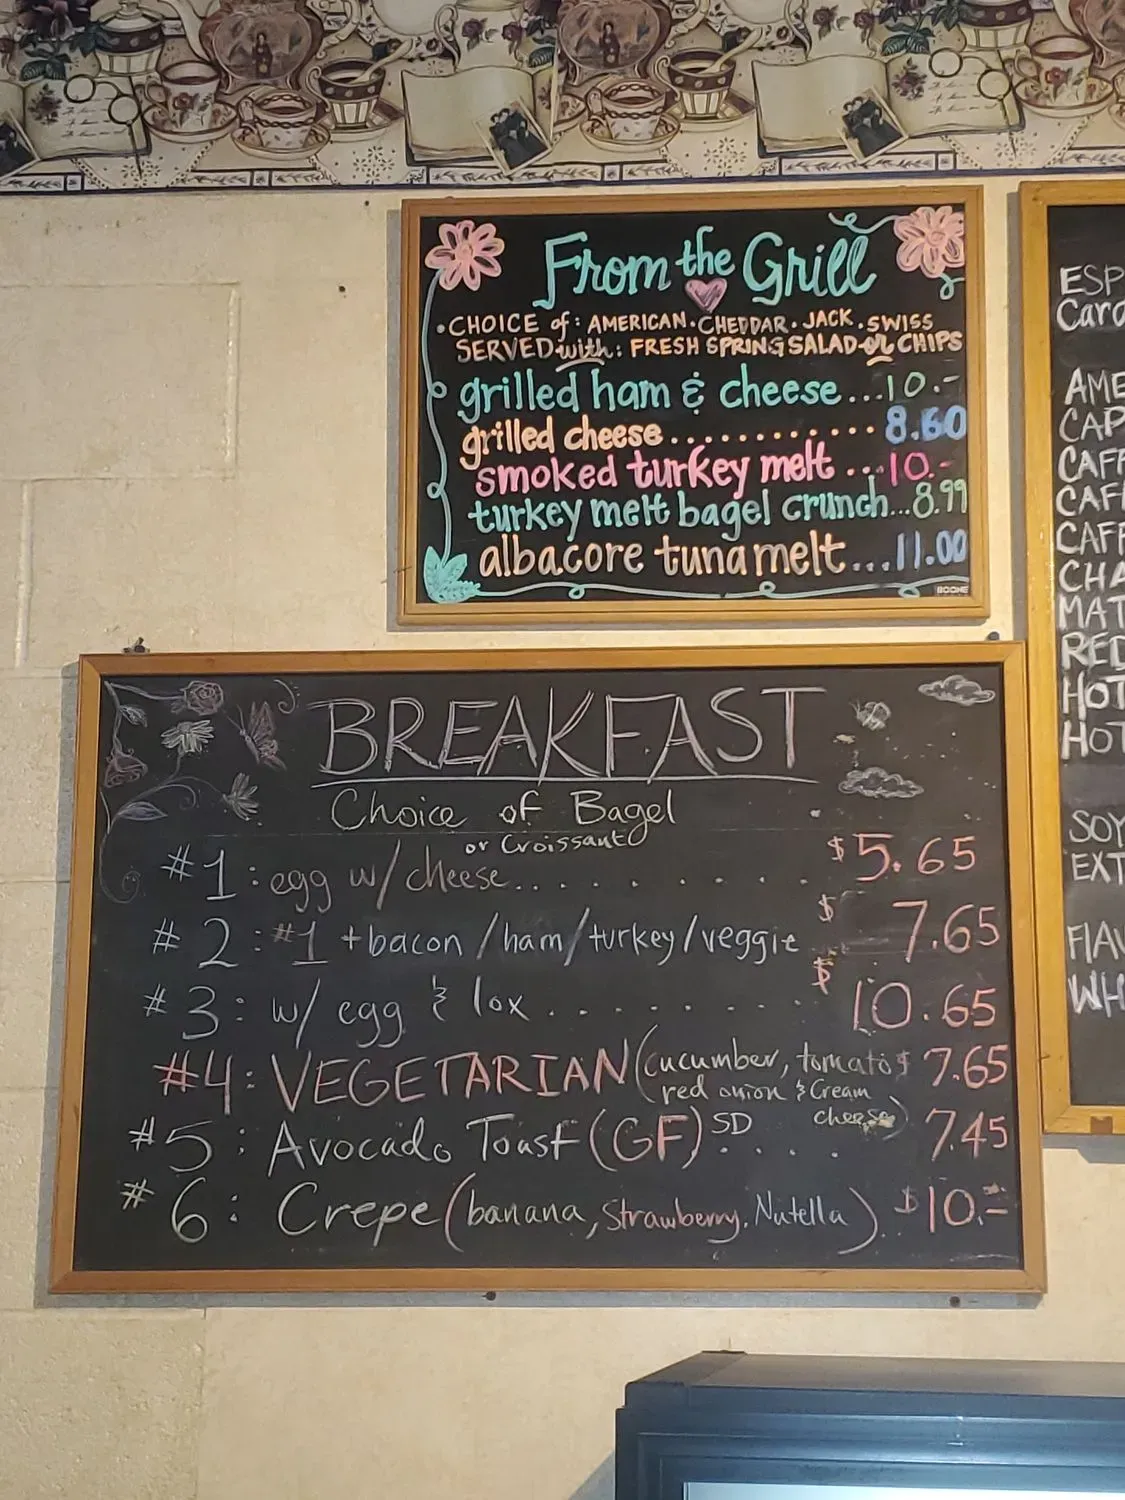 From the Grill
• CHOICE of: AMERICAN. CHEDDAR. JACK. SWISS
SERVED with: FRESH SPRING SALAD or CHIPS
grilled ham & cheese...10.-
grilled cheese............8.60
smoked turkey melt...10.-
turkey melt bagel crunch...8.99
albacore tuna melt...11.00
BOONE
BREAKFAST
Choice of Bagel
or Croissant
#1: egg w/ cheese........ $5.65
#2: #1 + bacon/ham/turkey/veggie $7.65
#3: w/ egg & lox........ $10.65
#4: VEGETARIAN (cucumber, tomato $7.65
red onion & Cream
cheese)
#5: Avocado Toast (GF) SD.... 7.45
#6: Crepe (banana, Strawberry, Nutella) $10.-
ESP
Cara
AME
CAP
CAFF
CAF
CAFF
CHA
MAT
RED
HOT
HOT
SOY
EXT
FlAV
WH